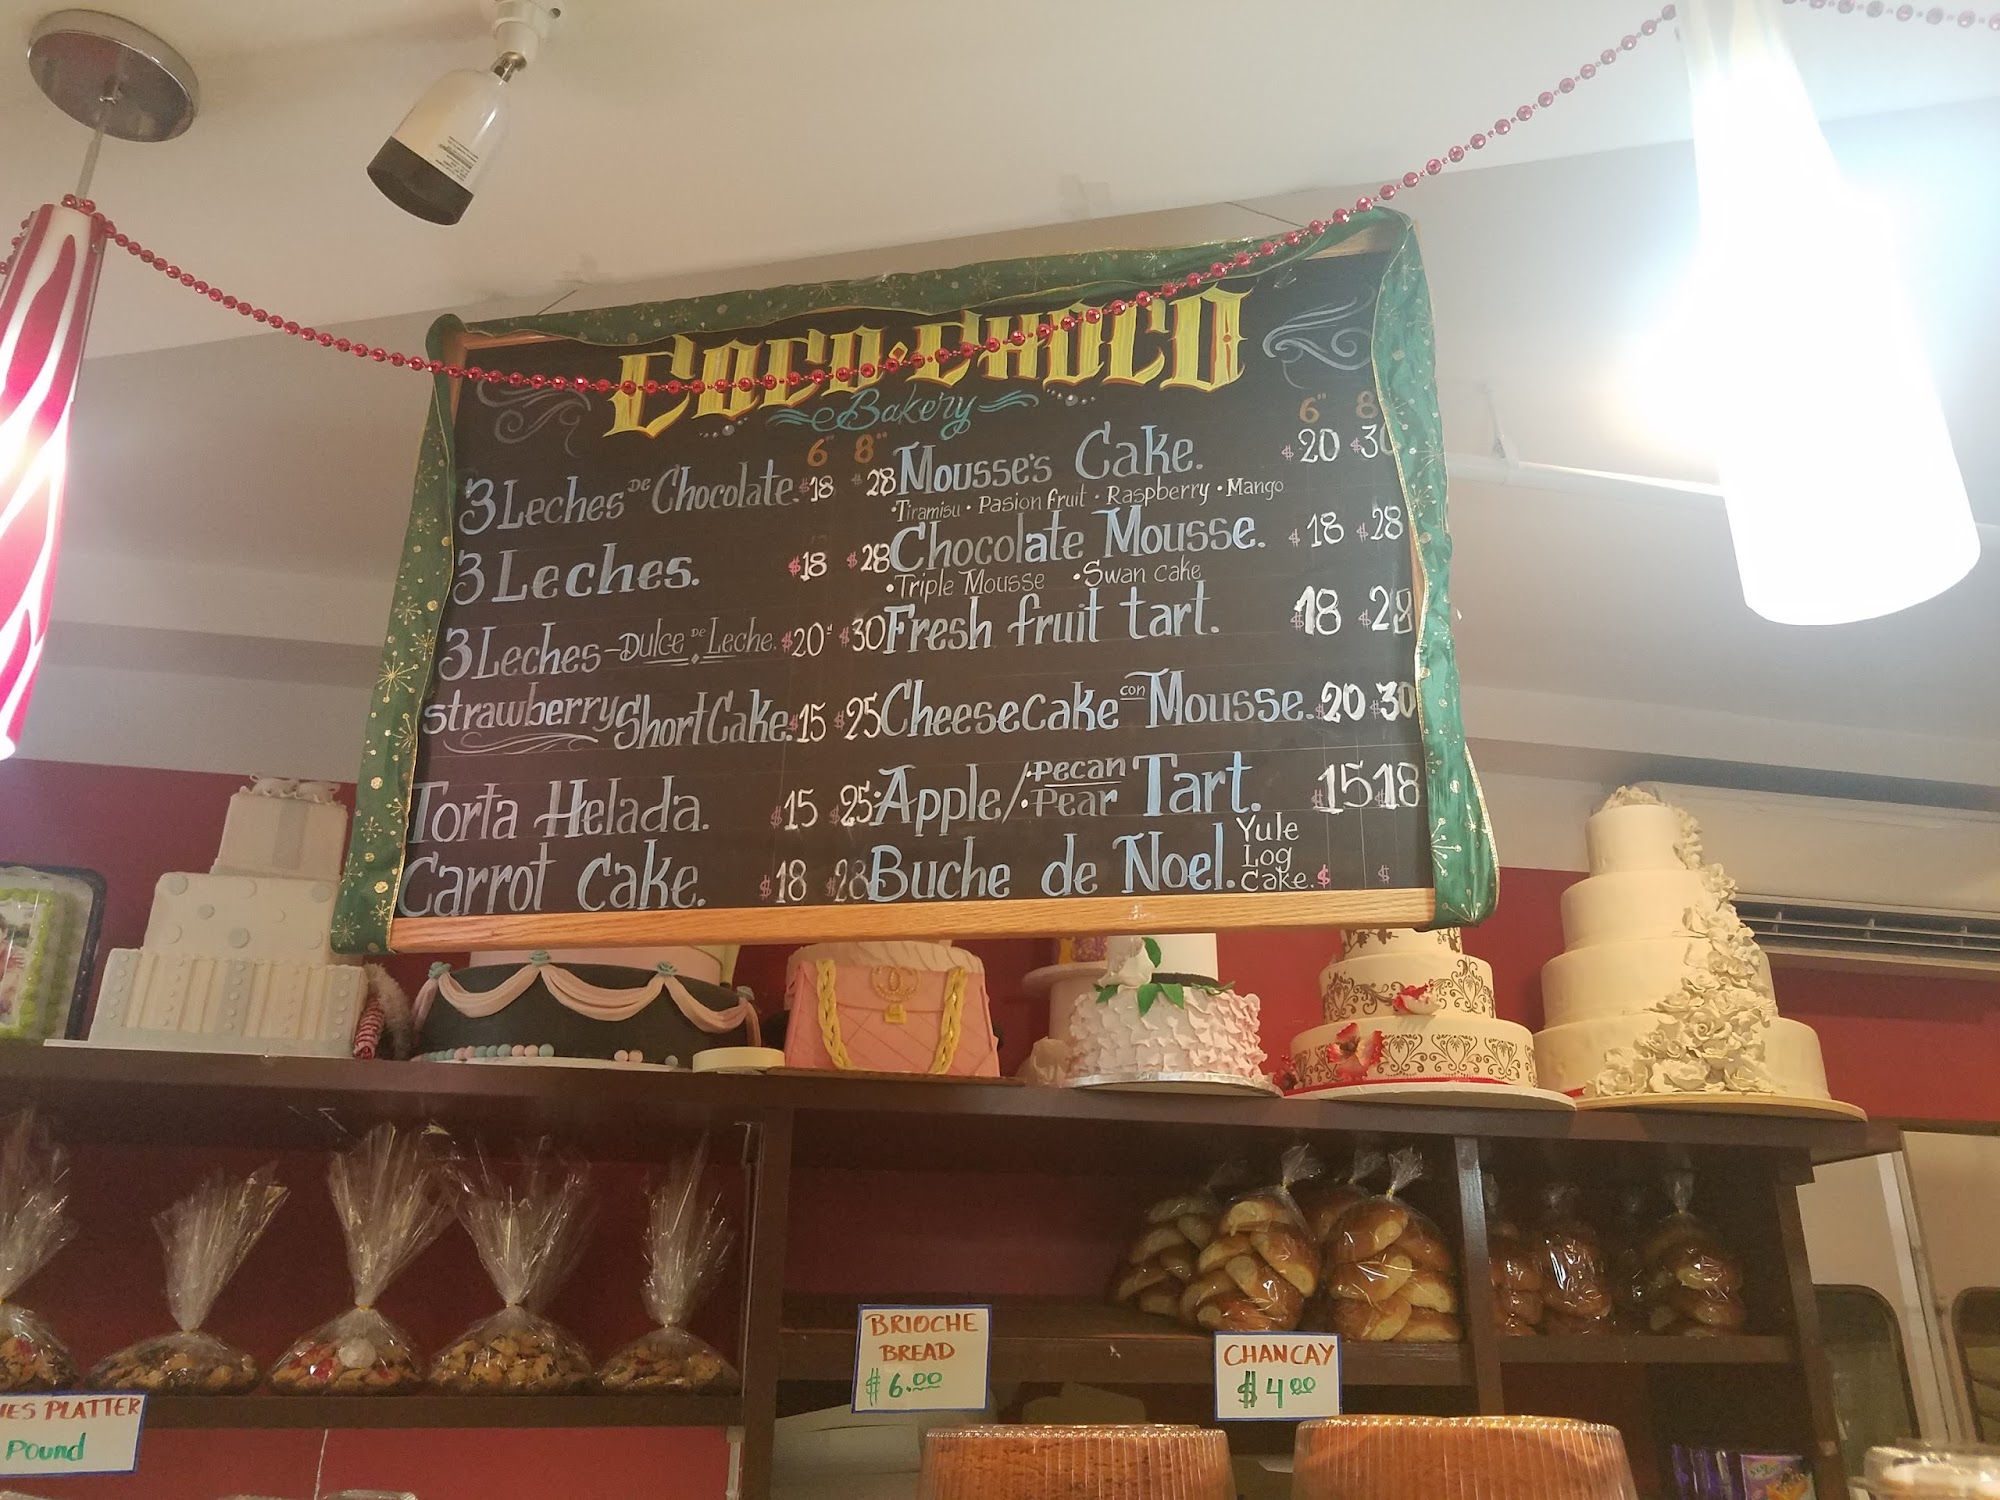 COCO·CHOCO
Bakery
6" 8"
3 Leches DE Chocolate. $18 $28
3 Leches. $18 $28
3 Leches-Dulce de Leche. $20" $30
strawberry ShortCake. $15 $25
Torta Helada. $15 $25
Carrot Cake. $18 $28
6" 8
Mousse's Cake. $20 $30
•Tiramisu • Pasion fruit • Raspberry • Mango
Chocolate Mousse. $18 $28
•Triple Mousse •Swan cake
Fresh fruit tart. $18 $28
Cheesecake con Mousse. $20 $30
•Apple/•Pecan •Pear Tart. $15 $18
Buche de Noel. Yule Log Cake. $ $
BRIOCHE
BREAD
$6.00
CHANCAY
$4 00
IES PLATTER
Pound